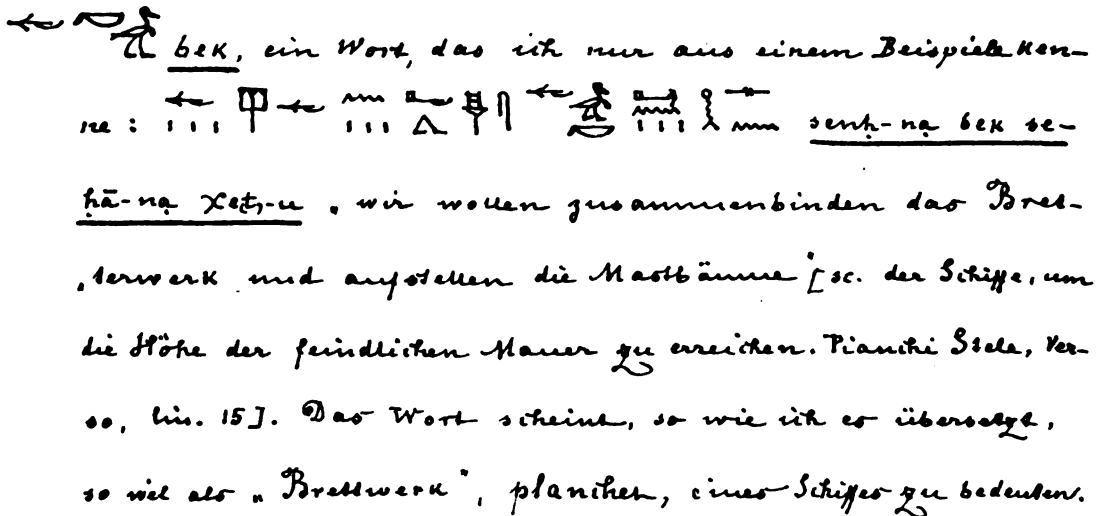 bek, ein Wort, das ich nur aus einem Beispiele ken-
ne: senḥ-na bek se-
ḥā-na χet-u „wir wollen zusammenbinden das Bret-
„terwerk und aufstellen die Mastbäume“ [sc. der Schiffe, um
die Höhe der feindlichen Mauer zu erreichen. Pianchi Stele, Ver-
so, lin. 15]. Das Wort scheint, so wie ich es übersetzt,
so viel als „Brettwerk“, planches, eines Schiffes zu bedeuten.